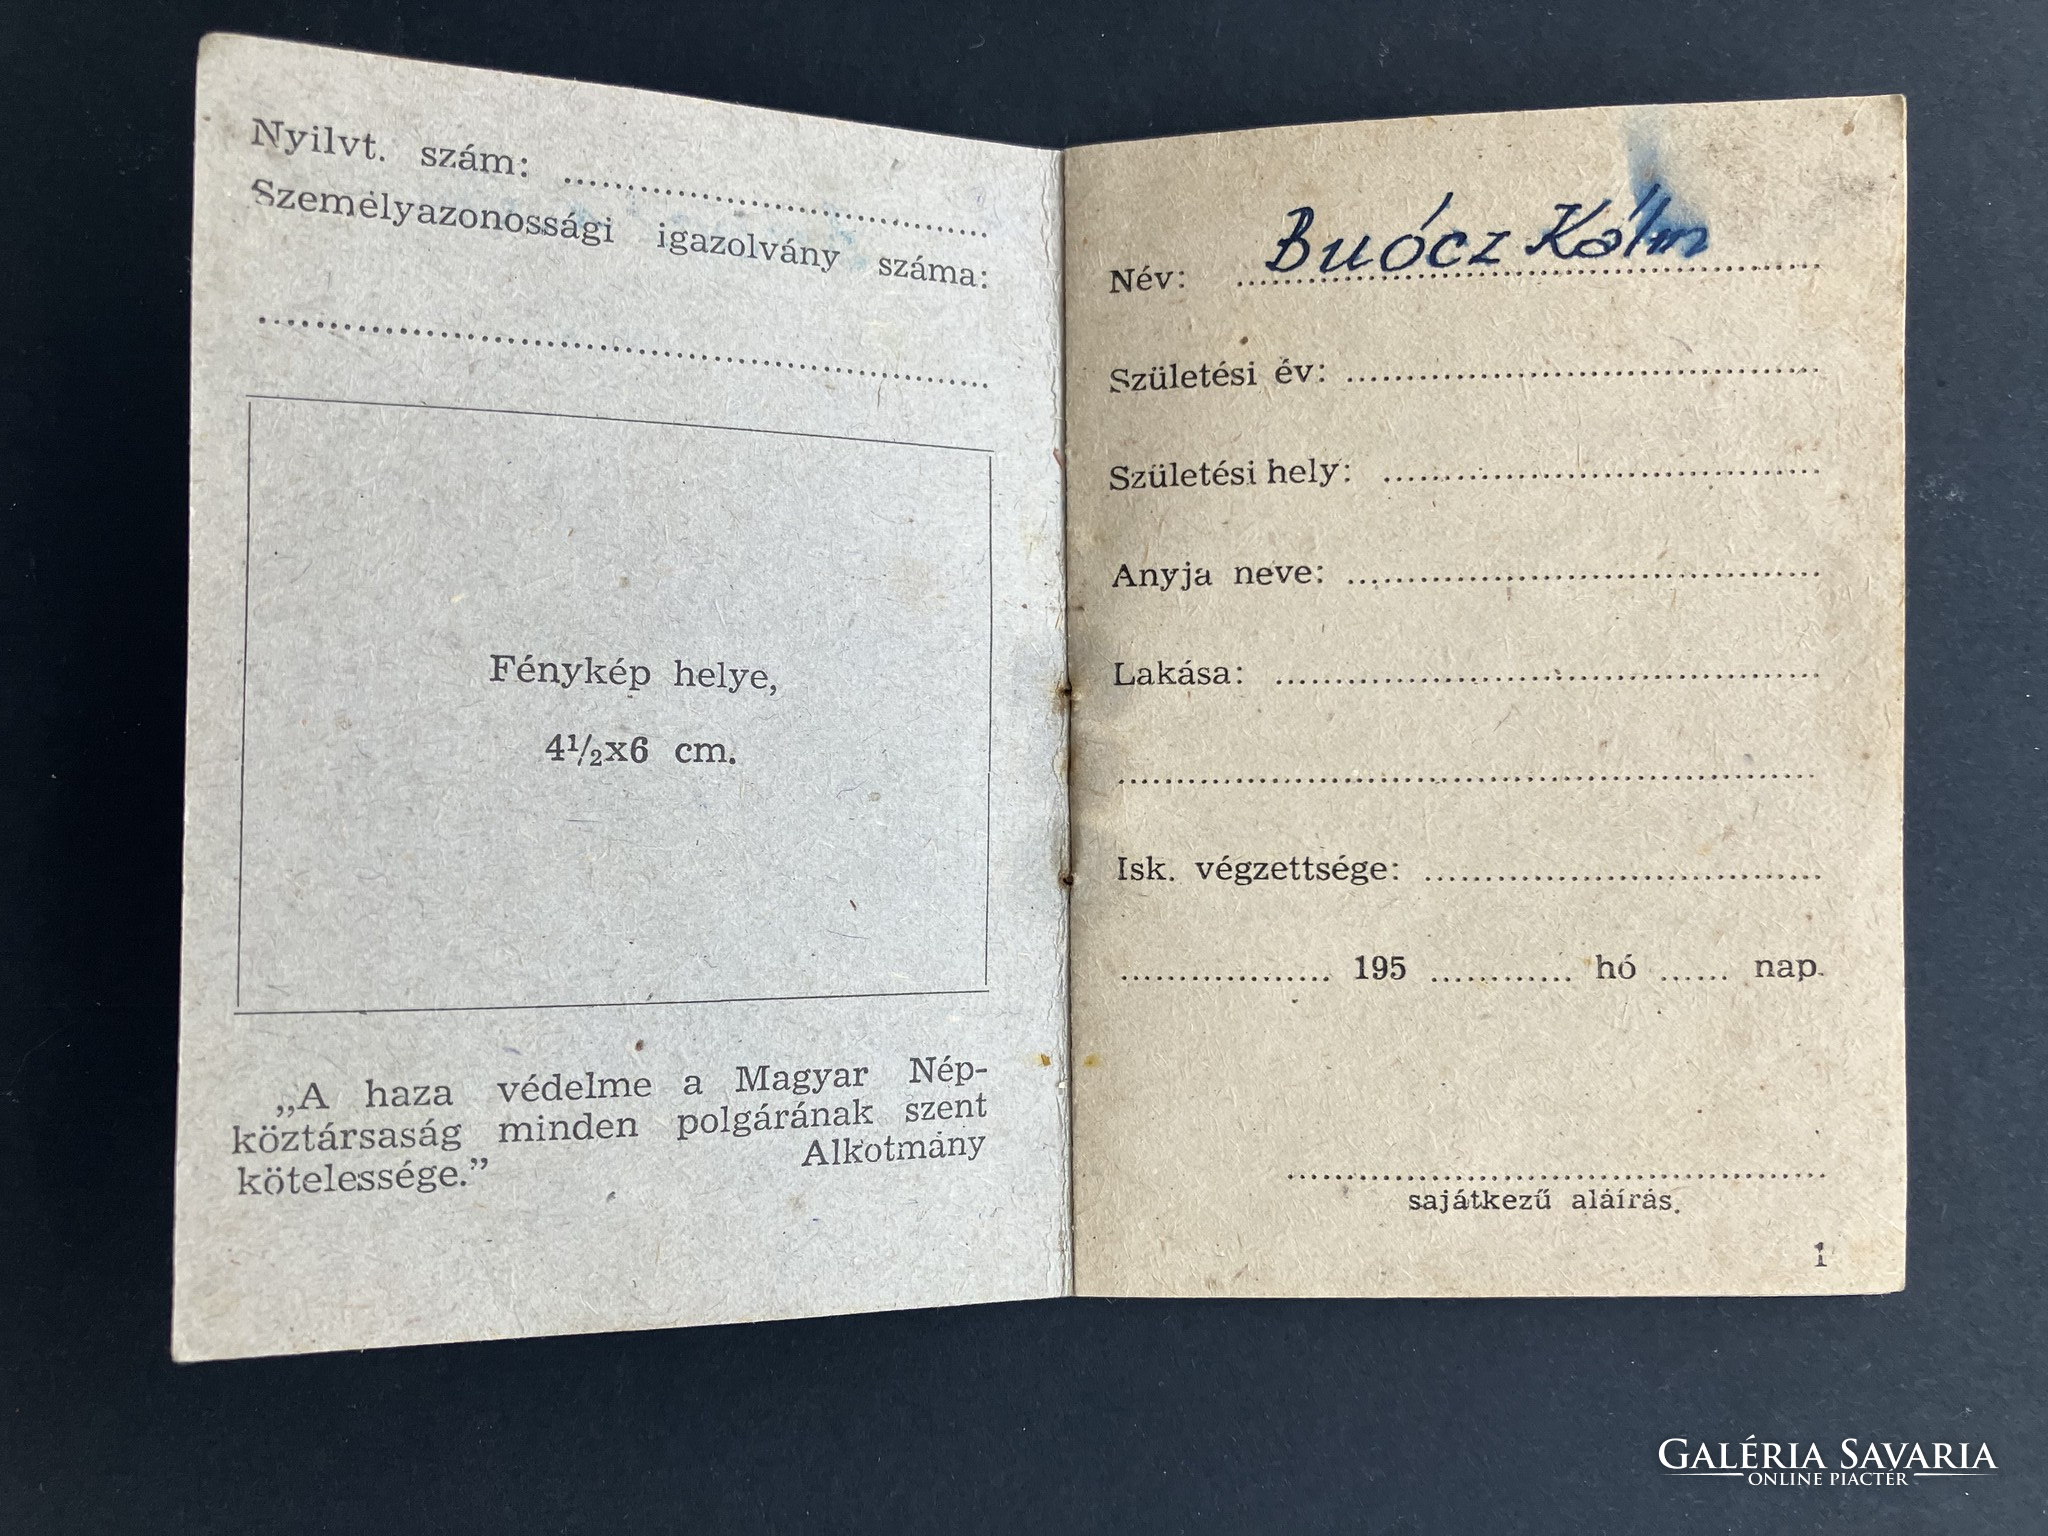 Nyilvt. szám:
Személyazonossági igazolvány száma:
Fénykép helye,
4½x6 cm.
„A haza védelme a Magyar Nép-
köztársaság minden polgárának szent
kötelessége.” Alkotmány
Név: Buócz Kálm
Születési év:
Születési hely:
Anyja neve:
Lakása:
Isk. végzettsége:
195 hó nap.
sajátkezű aláírás.
1
GALÉRIA SAVARIA
ONLINE PIACTÉR